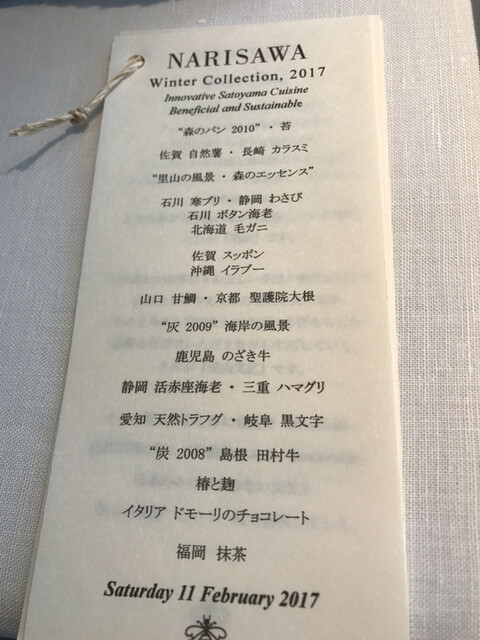 NARISAWA
Winter Collection, 2017
Innovative Satoyama Cuisine
Beneficial and Sustainable
“森のパン 2010”・苔
佐賀 自然薯・長崎 カラスミ
“里山の風景・森のエッセンス”
石川 寒ブリ・静岡 わさび
石川 ボタン海老
北海道 毛ガニ
佐賀 スッポン
沖縄 イラブー
山口 甘鯛・京都 聖護院大根
“灰 2009” 海岸の風景
鹿児島 のざき牛
静岡 活赤座海老・三重 ハマグリ
愛知 天然トラフグ・岐阜 黒文字
“炭 2008” 島根 田村牛
椿と麹
イタリア ドモーリのチョコレート
福岡 抹茶
Saturday 11 February 2017